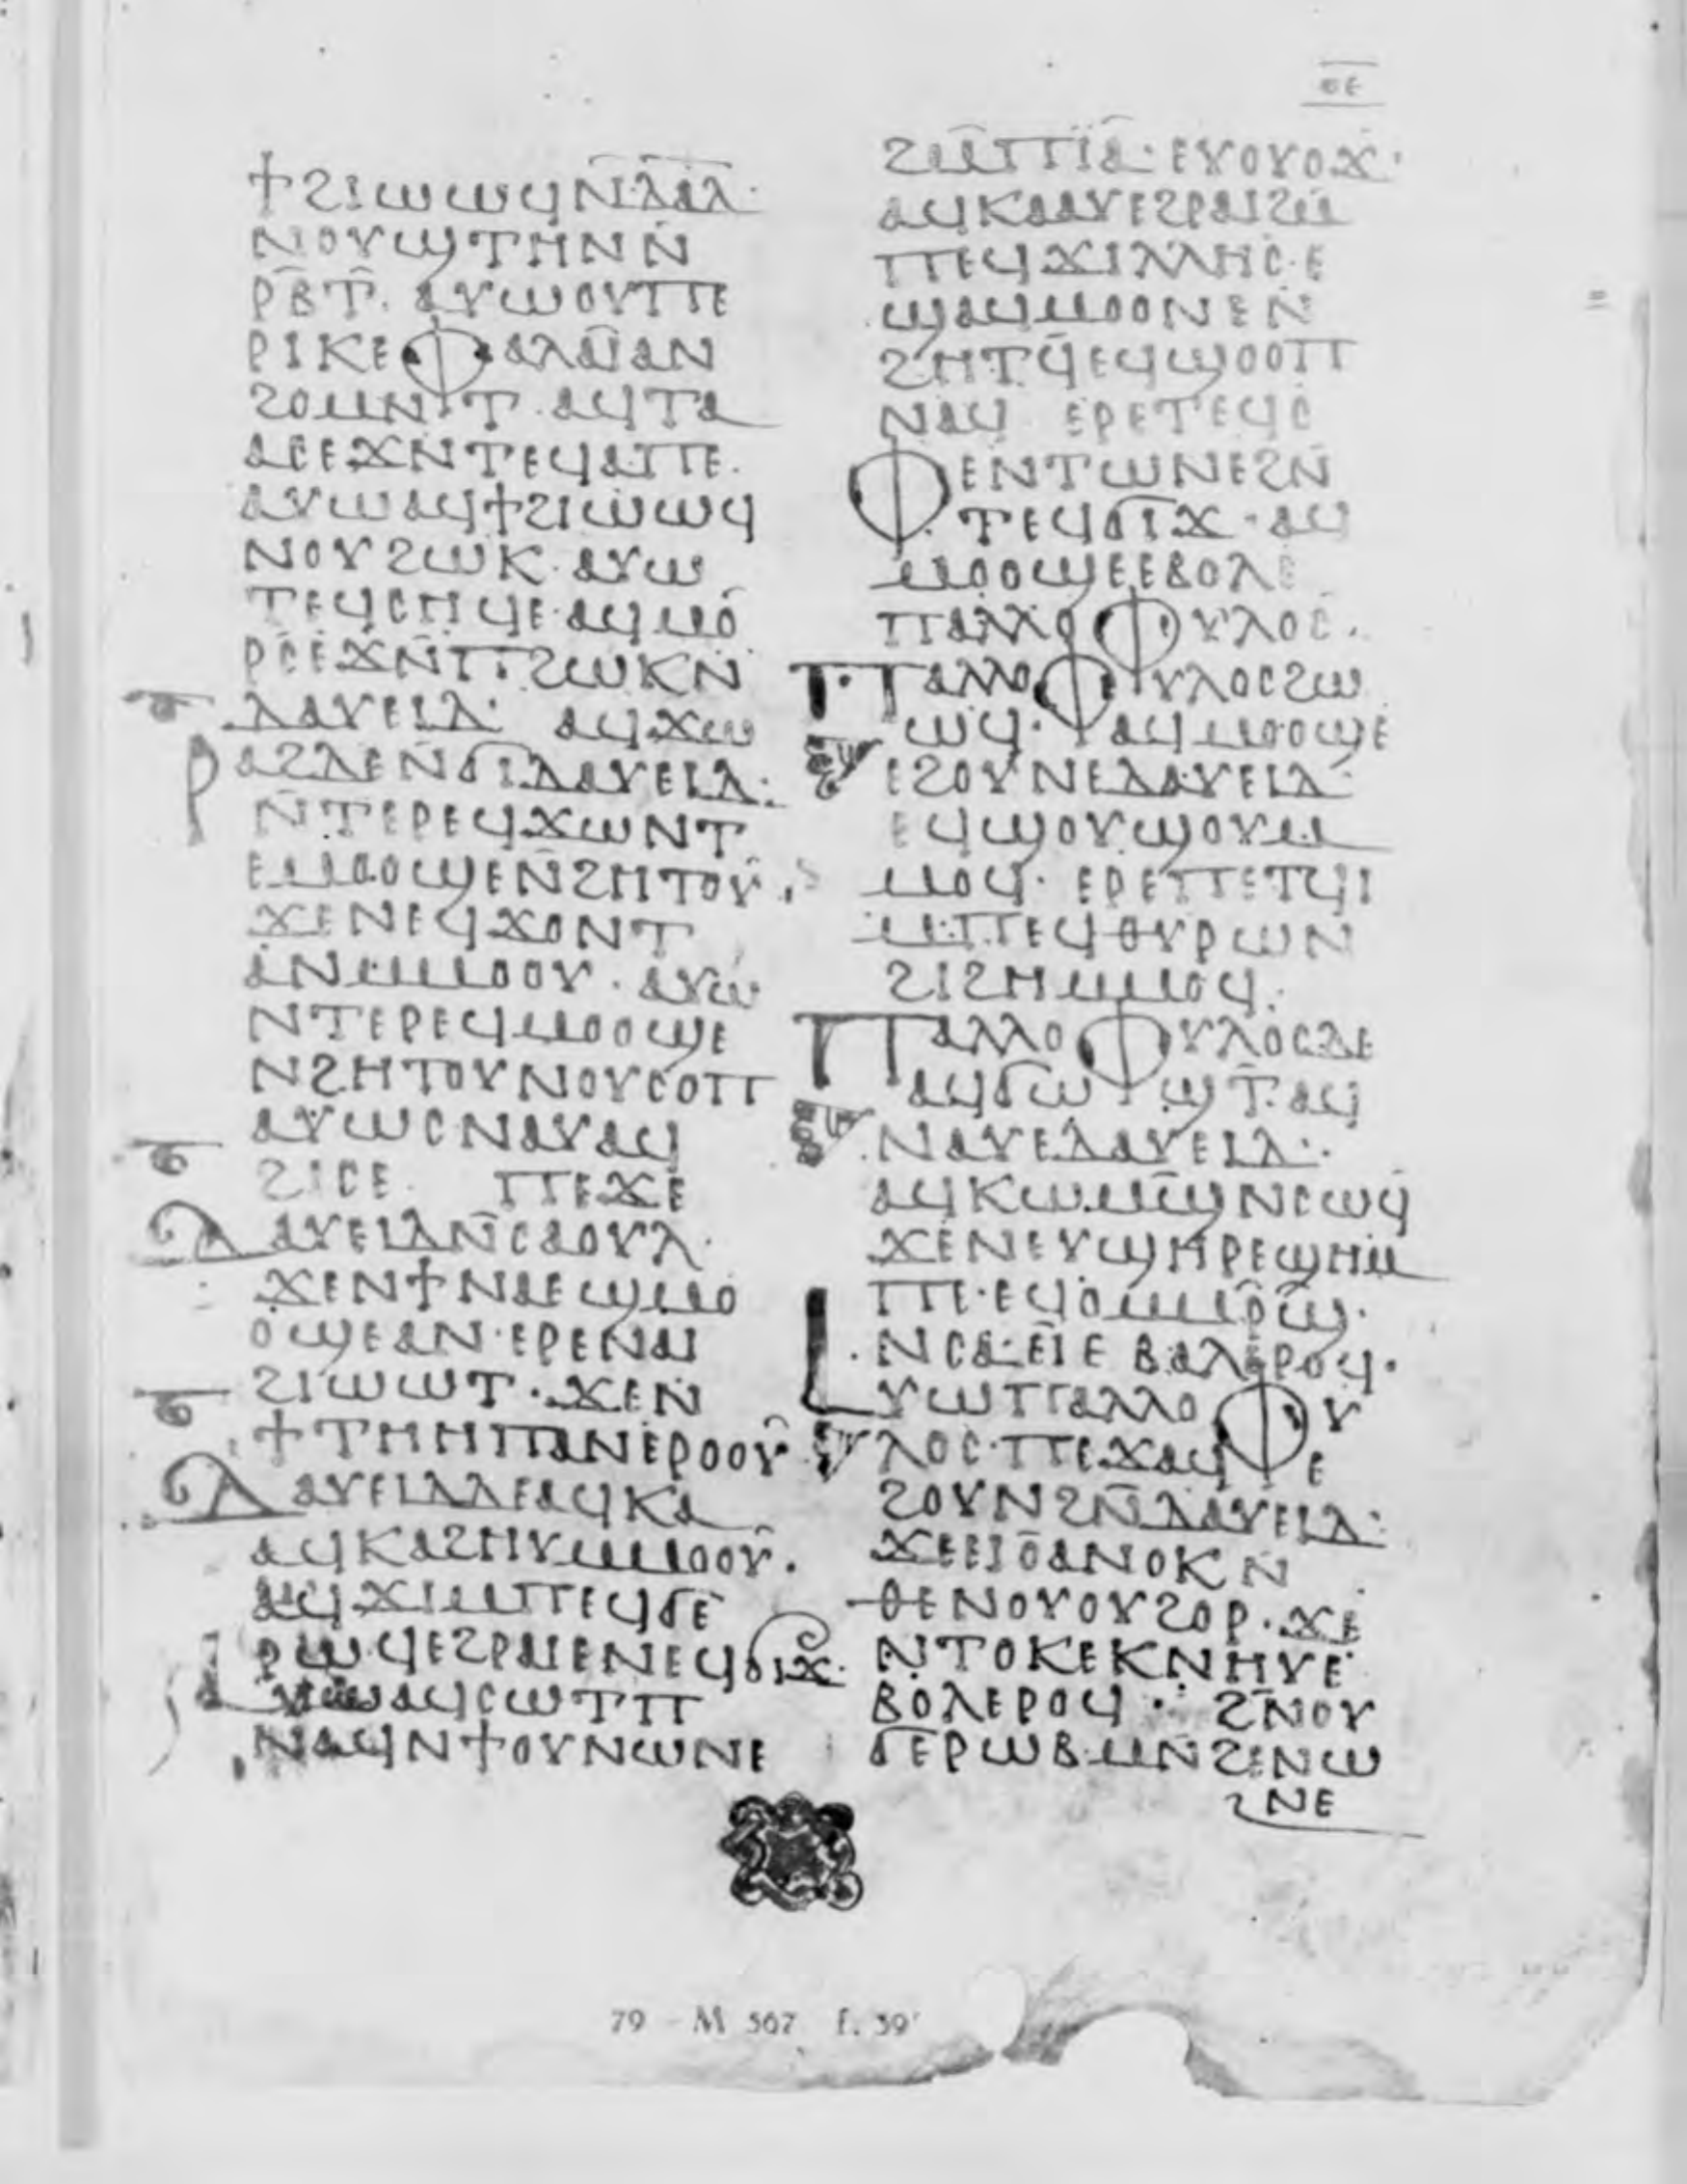 ⲟⲉ
ϯϩⲓⲱⲱϥⲛ̄ⲇ̄ⲁ̄ⲇ̄·
ⲛⲟⲩϣⲧⲏⲛⲛ̄
ⲣ̄ⲃ̄ⲧ̄· ⲁⲩⲱⲟⲩⲡⲉ
ⲣⲓⲕⲉⲫⲁⲗⲁⲓ̈ⲁⲛ
ϩⲟⲙⲛⲧ· ⲁϥⲧⲁ
ⲁⲥⲉϫⲛⲧⲉϥⲁⲡⲉ·
ⲁⲩⲱⲁϥϯϩⲓⲱⲱϥ
ⲛⲟⲩϩⲱⲕ· ⲁⲩⲱ
ⲧⲉϥⲥⲏϥⲉ· ⲁϥⲙⲟ̄
ⲣⲥ̄ⲉϫⲙ̄ⲡϩⲱⲕⲛ̄
ⲇⲁⲩⲉⲓⲇ· ⲁϥϫⲱ
ⲣⲁϩⲇⲉⲛ̄ϭⲓⲇⲁⲩⲉⲓⲇ·
ⲛ̄ⲧⲉⲣⲉϥϫⲱⲛⲧ
ⲉⲙⲟⲟϣⲉⲛ̄ϩⲏⲧⲟⲩ·
ϫⲉⲛⲉϥϫⲟⲛⲧ
ⲁⲛⲙⲙⲟⲟⲩ· ⲁⲩⲱ
ⲛⲧⲉⲣⲉϥⲙⲟⲟϣⲉ
ⲛϩⲏⲧⲟⲩⲛⲟⲩⲥⲟⲡ
ⲁⲩⲱⲥⲛⲁⲩⲁϥ
ϩⲓⲥⲉ· ⲡⲉϫⲉ
ⲇⲁⲩⲉⲓⲇⲛ̄ⲥⲁⲟⲩⲗ·
ϫⲉⲛϯⲛⲁⲉϣⲙⲟ
ⲟϣⲉⲁⲛ· ⲉⲣⲉⲛⲁⲓ
ϩⲓⲱⲱⲧ· ϫⲉⲛ
ϯⲧⲏⲏⲡⲁⲛⲉⲣⲟⲟⲩ
ⲇⲁⲩⲉⲓⲇⲇⲉⲁϥⲕⲁ
ⲁϥⲕⲁϩⲏⲩⲙⲙⲟⲟⲩ·
ⲁϥϫⲓⲙⲡⲉϥϭⲉ
ⲣⲱϥⲉϩⲣⲁⲓⲉⲛⲉϥϭⲓϫ·
ⲁⲩⲱⲁϥⲥⲱⲧⲡ
ⲛⲁϥⲛϯⲟⲩⲛⲱⲛⲉ
ϩⲙ̄ⲡⲓⲁ· ⲉⲩⲟⲩⲟϫ·
ⲁϥⲕⲁⲁⲩⲉϩⲣⲁⲓϩⲙ
ⲡⲉϥϫⲓⲗⲗⲏⲥ· ⲉ
ϣⲁϥⲙⲟⲟⲛⲉⲛ̄
ϩⲏⲧϥ̄ⲉϥϣⲟⲟⲡ
ⲛⲁϥ ⲉⲣⲉⲧⲉϥⲥ
ⲫⲉⲛⲧⲱⲛⲉϩⲛ̄
ⲧⲉϥϭⲓϫ· ⲁϥ
ⲙⲟⲟϣⲉⲉⲃⲟⲗⲉ
ⲡⲁⲗⲗⲟⲫⲩⲗⲟⲥ·
ⲡⲁⲗⲗⲟⲫⲩⲗⲟⲥϩⲱ
ⲱϥ· ⲁϥⲙⲟⲟϣⲉ
ⲉϩⲟⲩⲛⲉⲇⲁⲩⲉⲓⲇ·
ⲉϥϣⲟⲩϣⲟⲩⲙ
ⲙⲟϥ· ⲉⲣⲉⲡⲉⲧϥⲓ
ⲙⲡⲉϥⲑⲩⲣⲱⲛ
ϩⲓϩⲏⲙⲙⲟϥ·
ⲡⲁⲗⲗⲟⲫⲩⲗⲟⲥⲇⲉ
ⲁϥϭⲱϣⲧ̄· ⲁϥ
ⲛⲁⲩⲉⲇⲁⲩⲉⲓⲇ·
ⲁϥⲕⲱⲙϣ̄ⲛⲥⲱϥ
ϫⲉⲛⲉⲩϣⲏⲣⲉϣⲏⲙ
ⲡⲉ· ⲉϥⲟⲙⲙⲣ̄ϣ̄·
ⲛⲥⲁ·ⲉⲓⲉ ⲃⲁⲗⲉⲣⲟϥ·
ⲁⲩⲱⲡⲁⲗⲗⲟⲫⲩ
ⲗⲟⲥ· ⲡⲉϫⲁϥⲉ
ϩⲟⲩⲛϩⲛ̄ⲇⲁⲩⲉⲓⲇ·
ϫⲉⲉⲓⲟ̄ⲁⲛⲟⲕⲛ̄
ⲑⲉⲛⲟⲩⲟⲩϩⲟⲣ· ϫⲉ
ⲛⲧⲟⲕⲉⲕⲛⲏⲩⲉ
ⲃⲟⲗⲉⲣⲟϥ· ϩⲛ̄ⲟⲩ
ϭⲉⲣⲱⲃ·ⲙⲛ̄ϩⲉⲛⲱ
ⲛⲉ
79 - M 567 f. 39